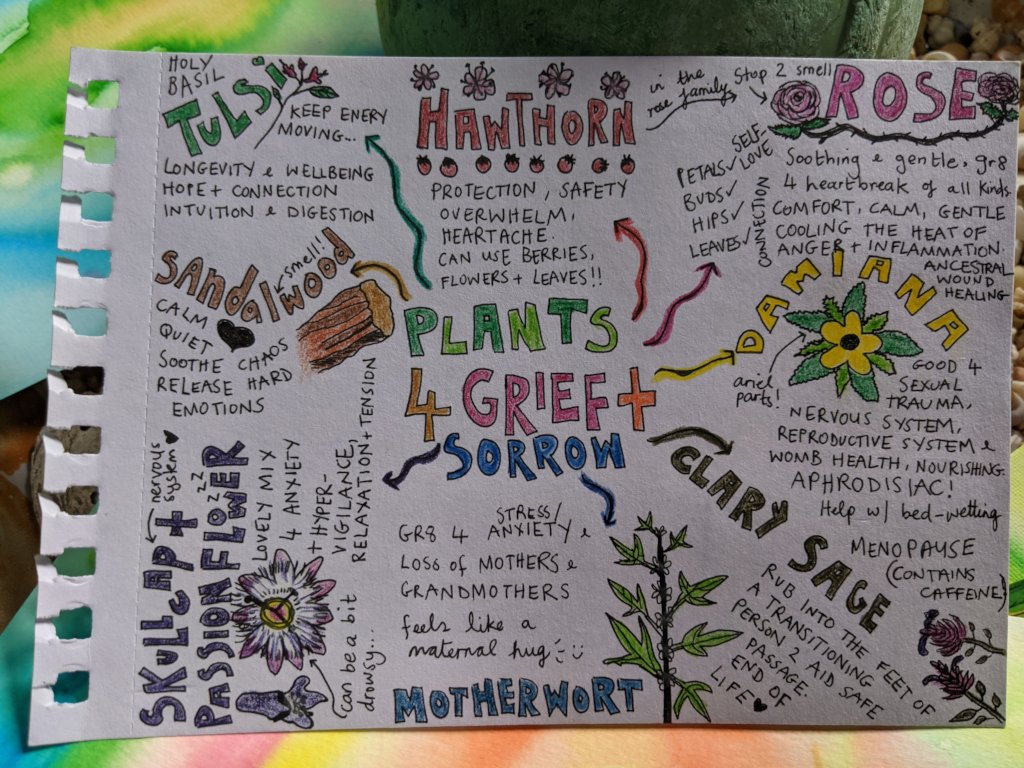 HOLY
BASIL
TULSI
KEEP ENERY
MOVING...
LONGEVITY & WELLBEING
HOPE + CONNECTION
INTUITION & DIGESTION
HAWTHORN
PROTECTION, SAFETY
OVERWHELM,
HEARTACHE.
CAN USE BERRIES,
FLOWERS + LEAVES!!
in the
rose family
Stop 2 smell
ROSE
PETALS ✓
BUDS ✓
HIPS ✓
LEAVES ✓
SELF-
LOVE
CONNECTION
Soothing & gentle, gr8
4 heartbreak of all kinds.
COMFORT, CALM, GENTLE
COOLING THE HEAT OF
ANGER + INFLAMMATION.
ANCESTRAL
WOUND
HEALING
SANDALWOOD
smell!!
CALM
QUIET
SOOTHE CHAOS
RELEASE HARD
EMOTIONS
PLANTS
4 GRIEF +
SORROW
DAMIANA
ariel
parts!
GOOD 4
SEXUAL
TRAUMA,
NERVOUS SYSTEM,
REPRODUCTIVE SYSTEM &
WOMB HEALTH, NOURISHING.
APHRODISIAC!
Help w/ bed-wetting
MENOPAUSE
(CONTAINS
CAFFEINE)
SKULLCAP +
PASSION FLOWER
nervous
system ♥
zzz
LOVELY MIX
4 ANXIETY
+ HYPER-
VIGILANCE,
RELAXATION + TENSION
(can be a bit
drowsy...
GR8 4 STRESS/
ANXIETY &
LOSS OF MOTHERS &
GRANDMOTHERS
feels like a
maternal hug
MOTHERWORT
CLARY SAGE
RUB INTO THE FEET OF
A TRANSITIONING
PERSON 2 AID SAFE
PASSAGE.
END OF
LIFE ♥